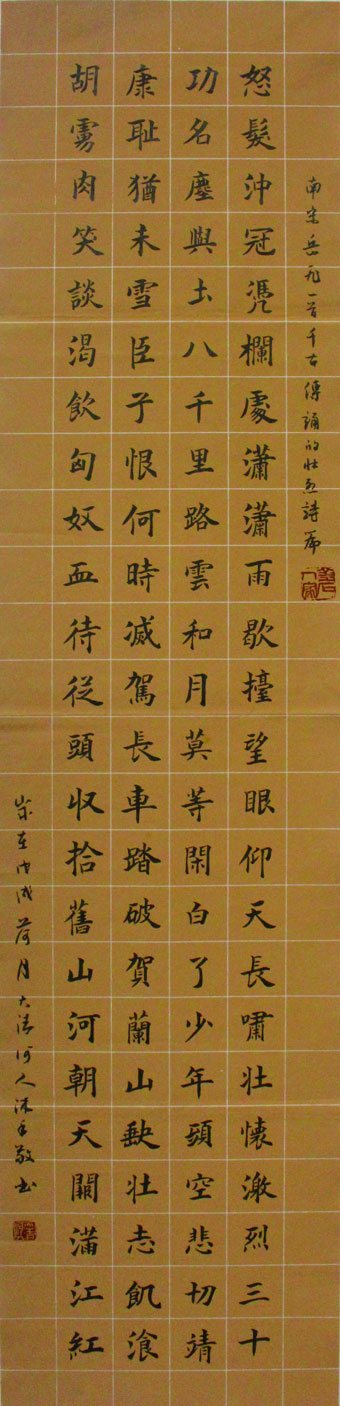 南宋岳飛一首千古傳誦的壯烈詩篇
怒髮沖冠凴欄處瀟瀟雨歇擡望眼仰天長嘯壯懷激烈三十
功名塵與土八千里路雲和月莫等閑白了少年頭空悲切靖
康耻猶未雪臣子恨何時滅駕長車踏破賀蘭山缺壯志飢飡
胡虜肉笑談渴飲匈奴血待從頭収拾舊山河朝天闕滿江紅
歲在戊戌荷月大清河人沐手敬書